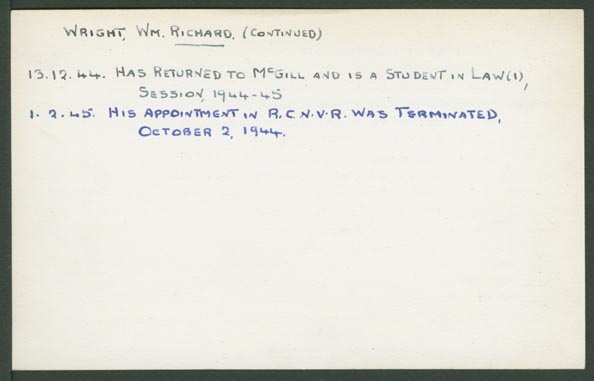 WRIGHT, WM. RICHARD. (CONTINUED)
13.12.44. HAS RETURNED TO McGILL AND IS A STUDENT IN LAW(1),
SESSION, 1944-45
1. 2. 45. HIS APPOINTMENT IN R.C.N.V.R. WAS TERMINATED,
OCTOBER 2, 1944.